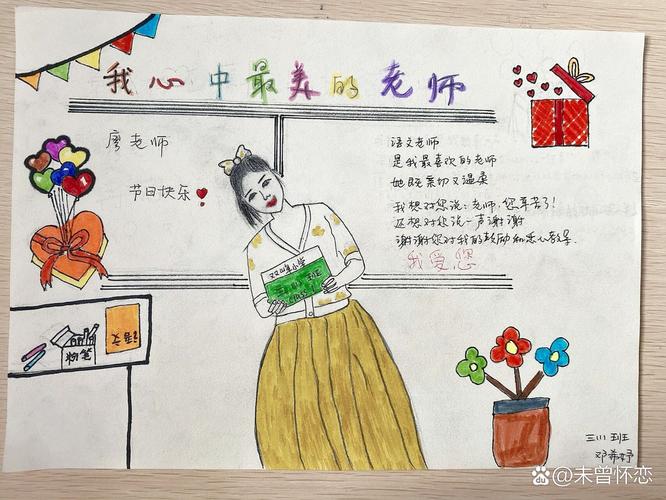 我心中最美的老师
廖老师
节日快乐
语文老师
是我最喜欢的老师
她既亲切又温柔
我想对您说:老师,您辛苦了!
还想对您说一声谢谢
谢谢您对我的鼓励和悉心教导.
我爱您
小学
三(1)班
语文
粉笔
三(1)班
邓
Baidu百度@未曾怀恋